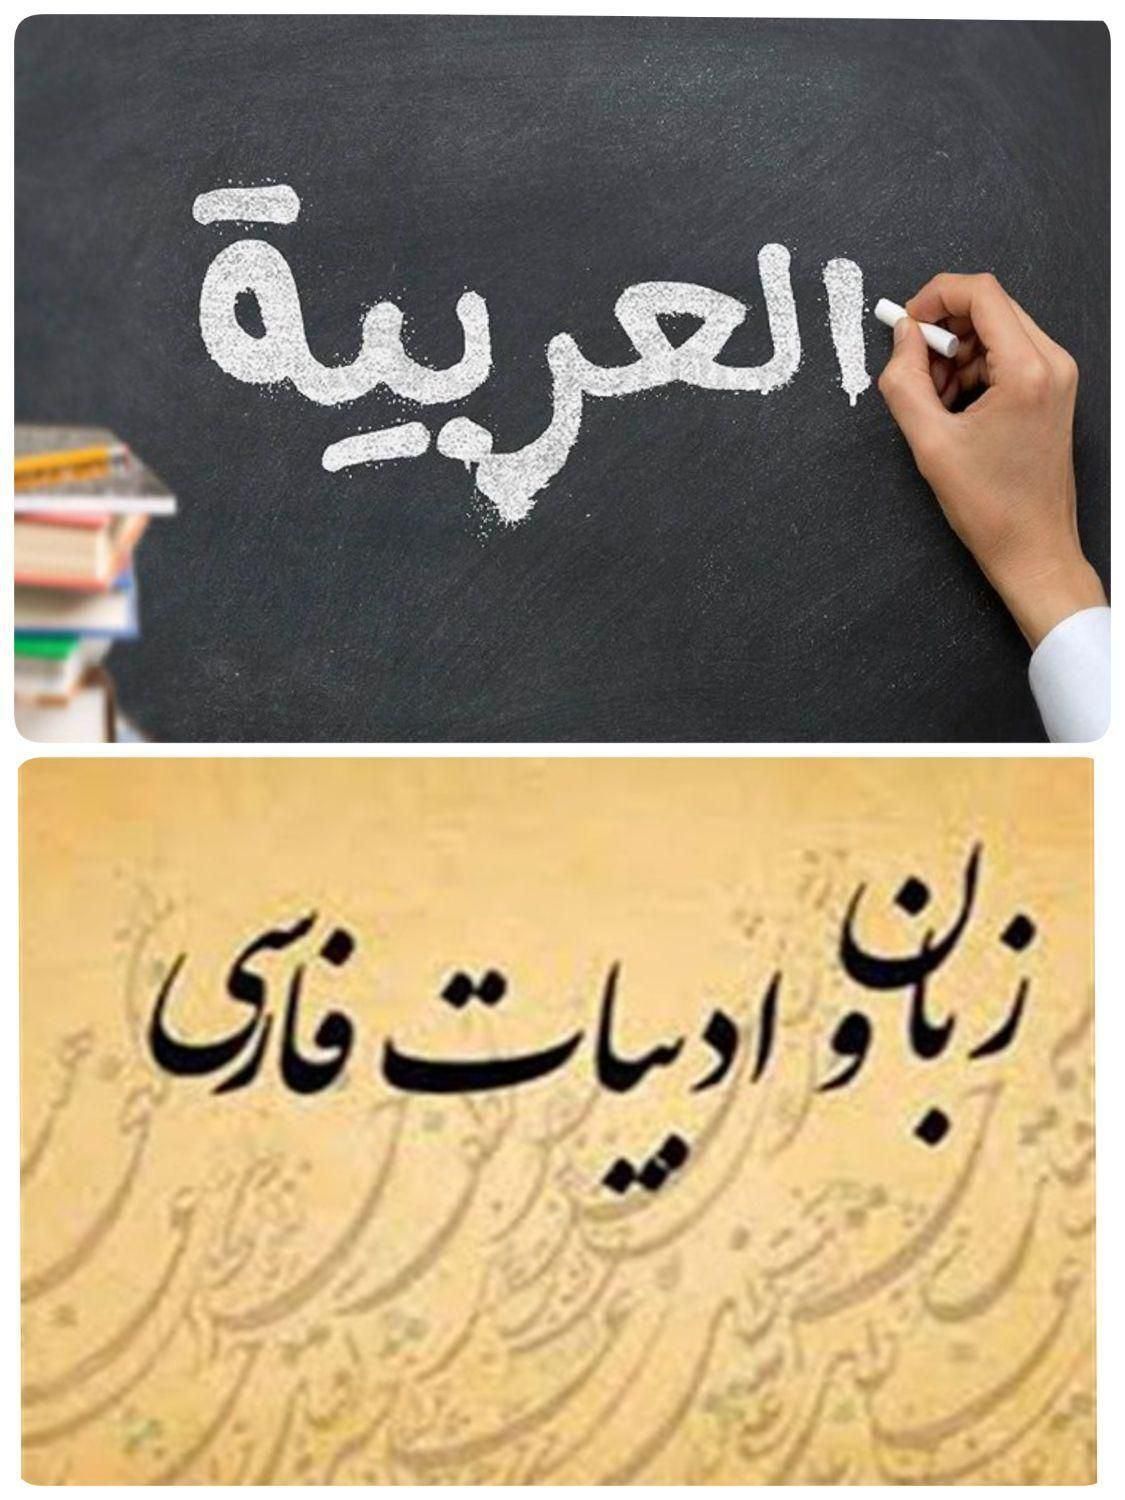 العربية
زبان و ادبیات فارسی